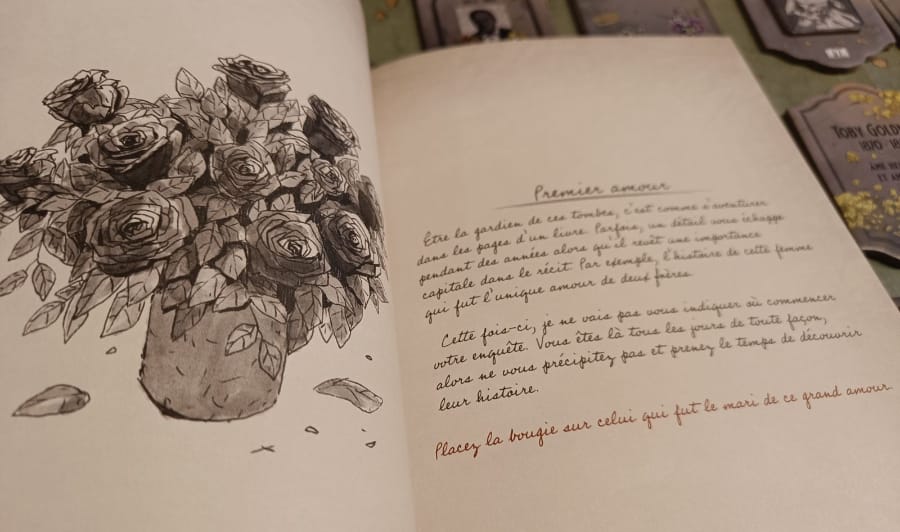 Premier amour
Être le gardien de ces tombes, c'est comme s'aventurer
dans les pages d'un livre. Parfois, un détail vous échappe
pendant des années alors qu'il revêt une importance
capitale dans le récit. Par exemple, l'histoire de cette femme
qui fut l'unique amour de deux frères.
Cette fois-ci, je ne vais pas vous indiquer où commencer
votre enquête. Vous êtes là tous les jours de toute façon,
alors ne vous précipitez pas et prenez le temps de découvrir
leur histoire.
Placez la bougie sur celui qui fut le mari de ce grand amour.
TOBY
1870 - 18
ET